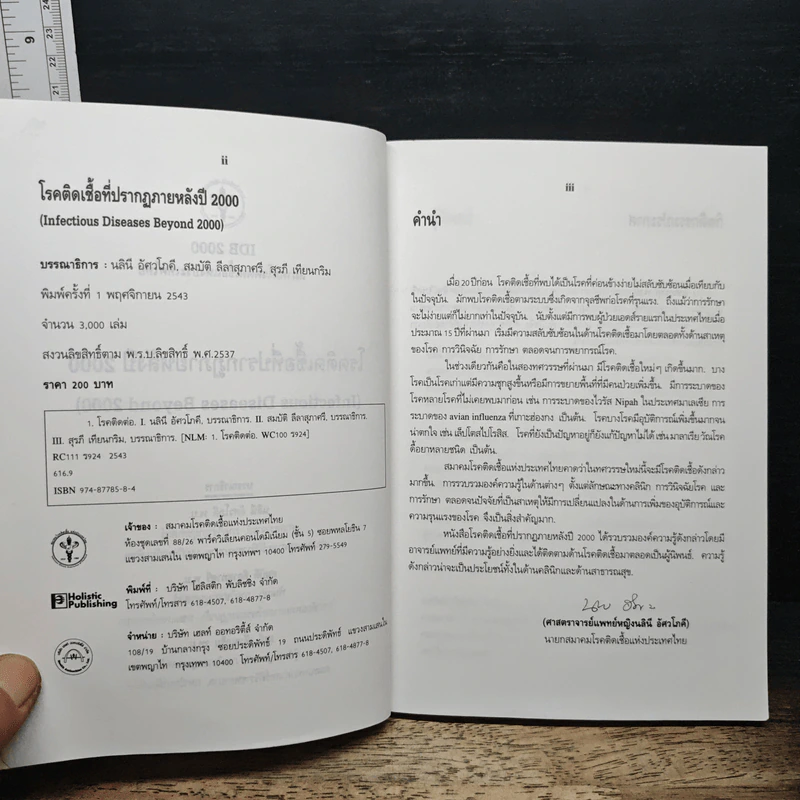 9
24
23
22
21
ii
โรคติดเชื้อที่ปรากฏภายหลังปี 2000
(Infectious Diseases Beyond 2000)
บรรณาธิการ : นลินี อัศวโภคี, สมบัติ ลีลาสุภาศรี, สุรภี เทียนกริม
พิมพ์ครั้งที่ 1 พฤศจิกายน 2543
จำนวน 3,000 เล่ม
สงวนลิขสิทธิ์ตาม พ.ร.บ.ลิขสิทธิ์ พ.ศ.2537
ราคา 200 บาท
1. โรคติดต่อ. I. นลินี อัศวโภคี, บรรณาธิการ. II. สมบัติ ลีลาสุภาศรี, บรรณาธิการ.
III. สุรภี เทียนกริม, บรรณาธิการ. [NLM: 1. โรคติดต่อ. WC100 ร924]
RC111 ร924 2543
616.9
ISBN 974-87785-8-4
เจ้าของ : สมาคมโรคติดเชื้อแห่งประเทศไทย
ห้องชุดเลขที่ 88/26 พาร์ควิเลียนคอนโดมิเนียม (ชั้น 5) ซอยพหลโยธิน 7
แขวงสามเสนใน เขตพญาไท กรุงเทพฯ 10400 โทรศัพท์ 279-5549
Holistic
Publishing
พิมพ์ที่ : บริษัท โฮลิสติก พับลิชชิ่ง จำกัด
โทรศัพท์/โทรสาร 618-4507, 618-4877-8
จำหน่าย : บริษัท เฮลท์ ออทอริตี้ส์ จำกัด
108/19 บ้านกลางกรุง ซอยประดิพัทธ์ 19 ถนนประดิพัทธ์ แขวงสามเสนใน
เขตพญาไท กรุงเทพฯ 10400 โทรศัพท์/โทรสาร 618-4507, 618-4877-8
iii
คำนำ
เมื่อ 20 ปีก่อน โรคติดเชื้อที่พบได้เป็นโรคที่ค่อนข้างง่ายไม่สลับซับซ้อนเมื่อเทียบกับ
ในปัจจุบัน. มักพบโรคติดเชื้อตามระบบซึ่งเกิดจากจุลชีพก่อโรคที่รุนแรง. ถึงแม้ว่าการรักษา
จะไม่ง่ายแต่ก็ไม่ยากเท่าในปัจจุบัน. นับตั้งแต่มีการพบผู้ป่วยเอดส์รายแรกในประเทศไทยเมื่อ
ประมาณ 15 ปีที่ผ่านมา เริ่มมีความสลับซับซ้อนในด้านโรคติดเชื้อมาโดยตลอดทั้งด้านสาเหตุ
ของโรค การวินิจฉัย การรักษา ตลอดจนการพยากรณ์โรค.
ในช่วงเดียวกันคือในสองทศวรรษที่ผ่านมา มีโรคติดเชื้อใหม่ๆ เกิดขึ้นมาก. บาง
โรคเป็นโรคเก่าแต่มีความชุกสูงขึ้นหรือมีการขยายพื้นที่ที่มีคนป่วยเพิ่มขึ้น. มีการระบาดของ
โรคหลายโรคที่ไม่เคยพบมาก่อน เช่น การระบาดของไวรัส Nipah ในประเทศมาเลเซีย การ
ระบาดของ avian influenza ที่เกาะฮ่องกง เป็นต้น. โรคบางโรคมีอุบัติการณ์เพิ่มขึ้นมากจน
น่าตกใจ เช่น เล็ปโตสไปโรสิส. โรคที่ยังเป็นปัญหาอยู่ก็ยังแก้ปัญหาไม่ได้ เช่น มาลาเรีย วัณโรค
ดื้อยาหลายชนิด เป็นต้น.
สมาคมโรคติดเชื้อแห่งประเทศไทยคาดว่าในทศวรรษใหม่นี้จะมีโรคติดเชื้อดังกล่าว
มากขึ้น. การรวบรวมองค์ความรู้ในด้านต่างๆ ตั้งแต่ลักษณะทางคลินิก การวินิจฉัยโรค และ
การรักษา ตลอดจนปัจจัยที่เป็นสาเหตุให้มีการเปลี่ยนแปลงในด้านการเพิ่มของอุบัติการณ์และ
ความรุนแรงของโรค จึงเป็นสิ่งสำคัญมาก.
หนังสือโรคติดเชื้อที่ปรากฏภายหลังปี 2000 ได้รวบรวมองค์ความรู้ดังกล่าวโดยมี
อาจารย์แพทย์ที่มีความรู้อย่างยิ่งและได้ติดตามด้านโรคติดเชื้อมาตลอดเป็นผู้นิพนธ์. ความรู้
ดังกล่าวน่าจะเป็นประโยชน์ทั้งในด้านคลินิกและด้านสาธารณสุข.
(ศาสตราจารย์แพทย์หญิงนลินี อัศวโภคี)
นายกสมาคมโรคติดเชื้อแห่งประเทศไทย